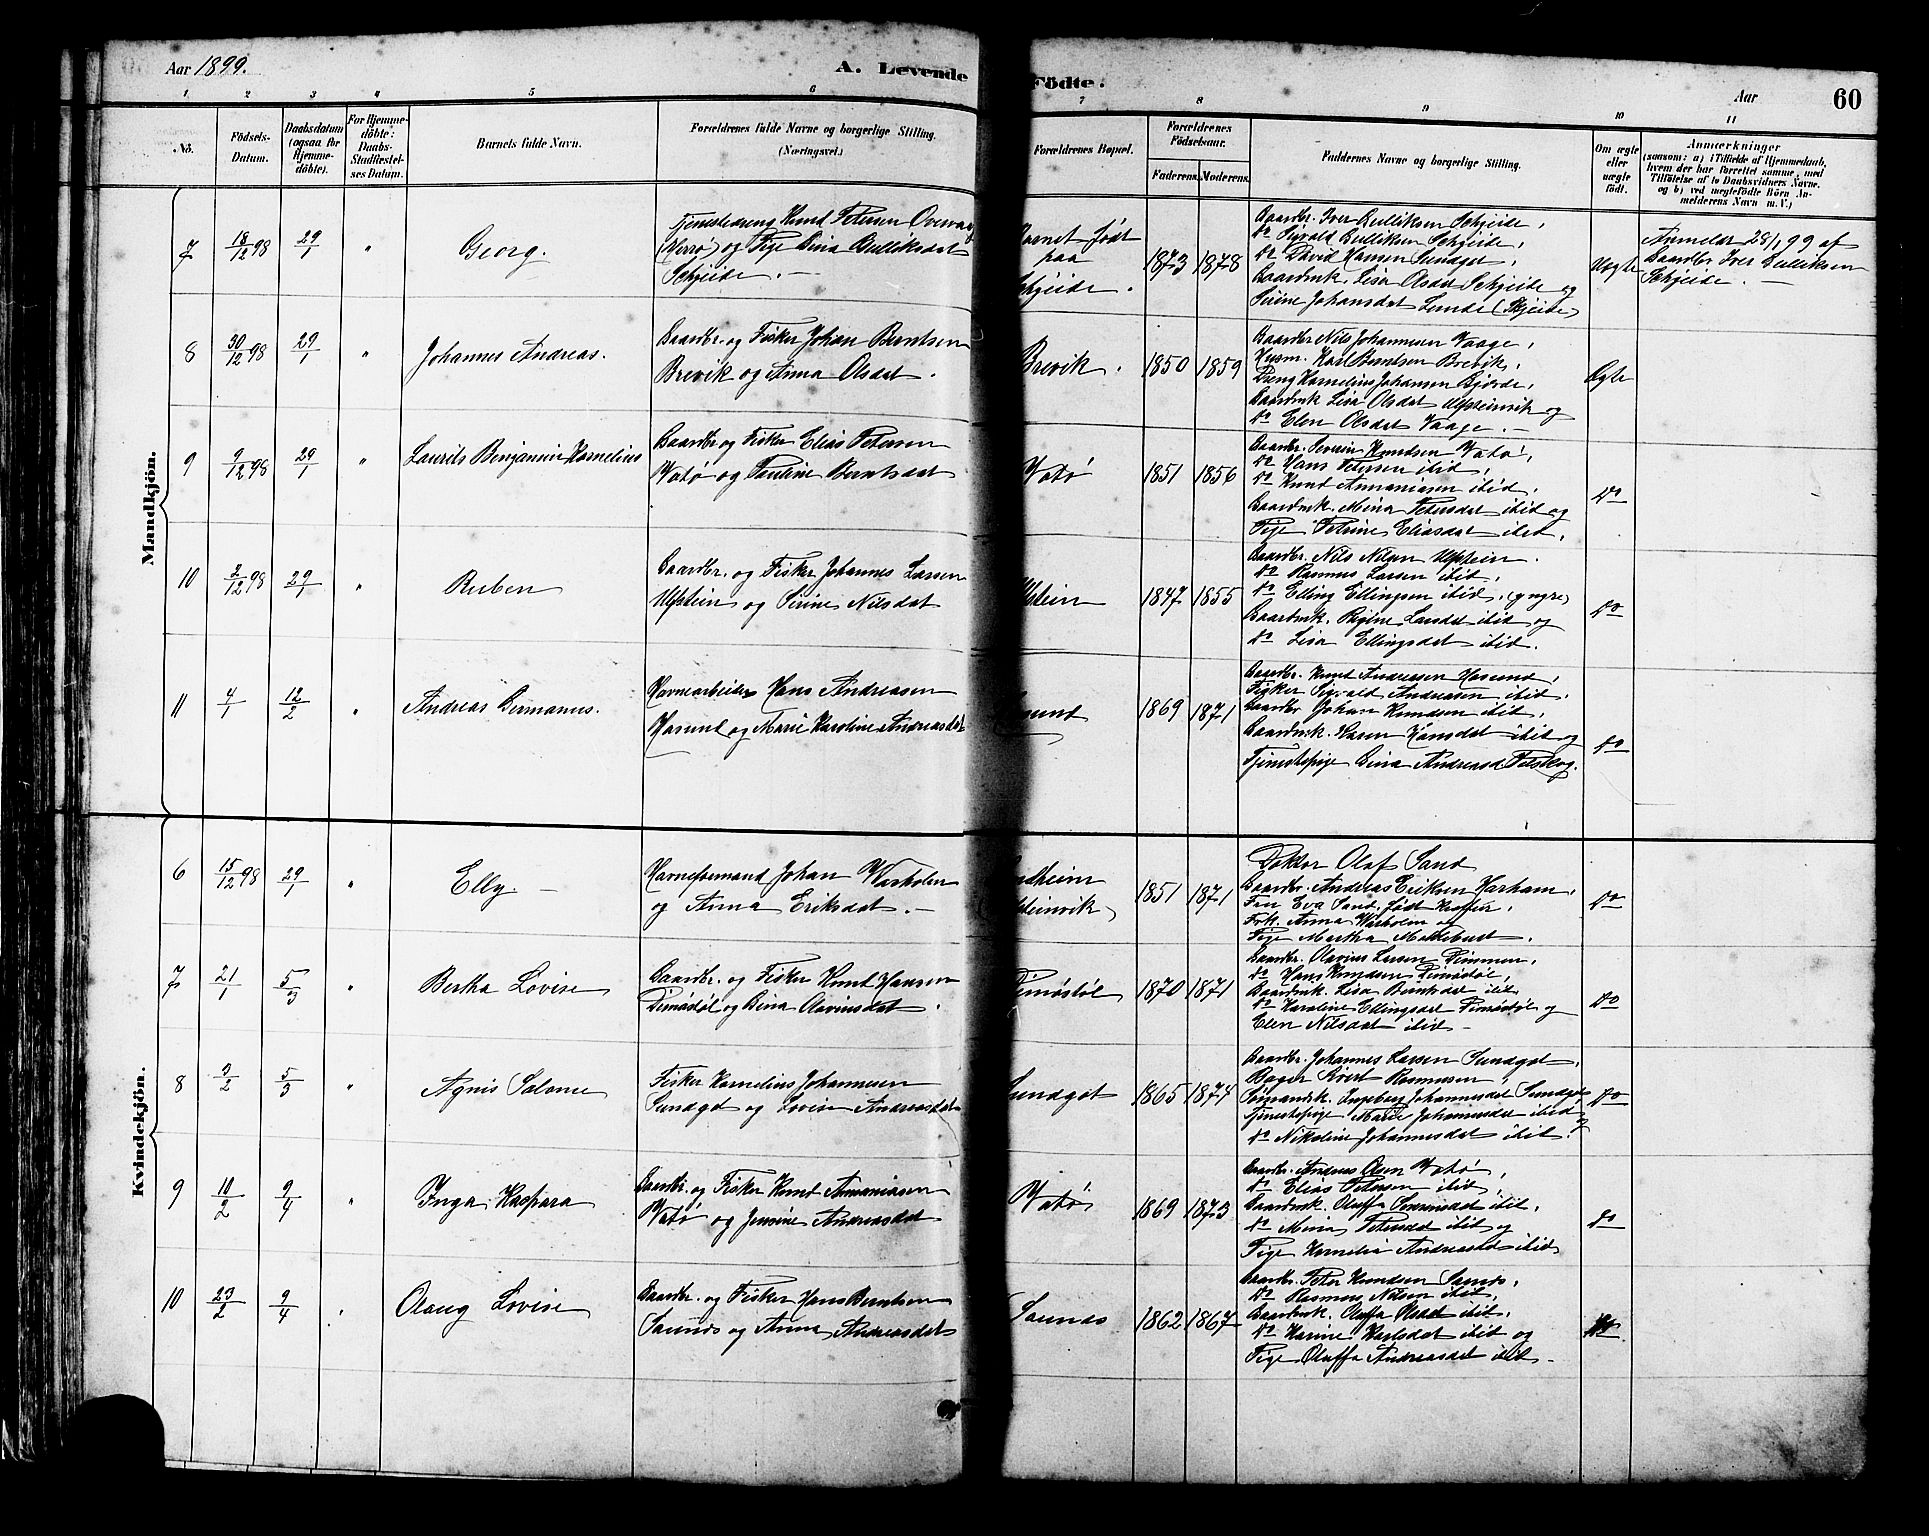 Aar 1899.
A. Levende
Födte.
Aar
60
1
2
3
4
5
6
7
8
9
10
11
No.
Födsels-
Datum.
Daabsdatum
(ogsaa for
Hjemme-
döbte).
For Hjemme-
döbte:
Daabs-
Stadfæstel-
ses Datum.
Barnets fulde Navn.
Forældrenes fulde Navne og borgerlige Stilling.
(Næringsvei.)
Forældrenes Bopæl.
Forældrenes
Födselsaar.
Faderens.
Moderens.
Faddernes Navne og borgerlige Stilling.
Om ægte
eller
uægte
födt.
Anmærkninger
(saasom: a) i Tilfælde af Hjemmedaab,
hvem der har forrettet samme, med
Tilföielse af to Daabsvidners Navne,
og b) ved uægtefödte Börn An-
melderens Navn m. V.)
Mandkjön.
7
18/12 98
29/1
"
Georg.
Tjenestedreng Knud Petersen
(Herø) og Pige Dina Bulliksdat
Schjeide. —
Barnet født
paa
Schjeide.
1873
1878
Gaardbr. Iver Bulliksen Schjeide,
do Sigvald Bulliksen Schjeide,
do David Hansen Sundgot,
Gaardmk. Lisa Olsdat Schjeide og
Serine Johansdat Lunde (Skjeide)
Uægte
Anmeldt 28/1 99 af
Gaardbr Iver Bulliksen
Schjeide. —
8
30/12 98
29/1
"
Johannes Andreas.
Gaardbr. og Fisker Johan Berntsen
Brevik og Anna Olsdat.
Brevik.
1850
1859
Gaardbr Nils Johannesen Vaage,
Husm. Karl Berntsen Brevik,
Dreng Kornelius Johansen Gjørde,
Gaardmk Lisa Olsdat Ulsteinvik og
do Elen Olsdat Vaage. —
Ægte
9
9/12 98
29/1
"
Laurits Benjamin Kornelius
Gaardbr. og Fisker Elias Petersen
Vatø og Pauline Berntsdat
Vatø
1851
1856
Gaardbr. Severin Knudsen Vatø,
do Hans Petersen ibid,
do Knud Annaniasen ibid,
Gaardmk. Mina Petersdat ibid og
Pige Petrine Eliasdat ibid.
do
10
2/12 98
29/1
"
Ruben
Gaardbr. og Fisker Johannes Larsen
Ulstein og Serine Nilsdat
Ulstein
1847
1855
Gaardbr. Nils Nilsen Ulstein.
do Rasmus Larsen ibid,
do Elling Ellingsen ibid, (yngre)
Gaardmk. Regine Larsdat ibid og
do Lisa Ellingsdat ibid.
do
11
4/1
12/2
"
Andreas Germanus.
Havnearbeider Hans Andreasen
Hasund og Marie Karoline Andreasdat
Hasund
1869
1871
Gaardbr. Knud Andreasen Hasund,
Fisker Sigvald Andreasen ibid.
Gaardbr Johan Knudsen ibid,
Gaardmk. Karen Hansdat ibid og
Tjenestepige Dina Andreasd
do
Kvindekjön.
6
15/12 98
29/1
"
Elly. —
Havneformand Johan Warholm
og Anna Eriksdat. —
Ulsteinvik)
1851
1871
Doktor Olaf Sand
Gaardbr. Andreas Eriksen Harham,
Fru Eva Sand, født
Frk. Anna Warholm og
Pige Martha
do
7
21/1
5/3
"
Bertha Lovise
Gaardbr. og Fisker Knut Hansen
Dimøstøl og Dina Olaviusdat.
Dimøstøl
1870
1871
Gaardbr. Olavius Larsen Dimmen,
do Hans Knudsen Dimøstøl,
Gaardmk. Lisa Berntsdat ibid
do Karoline Ellingsdat Dimøstøl og
Elen Nilsdat ibid —
do
8
3/2
5/3
"
Agnis Salome
Fisker Kornelius Johannesen
Sundgot og Lovise Andreasdat
Sundgot
1865
1874
Gaardbr. Johannes Larsen Sundgot,
Bager Sivert Rasmussen,
Ingeborg Johannesdat Sundgot
Tjenestepige Marie Johannesdat ibid og
do Nikoline Johannesdat ibid.
do
9
10/2
9/4
"
Inga Kaspara
Gaardbr. og Fisker Knud Annaniasen
Vatø og Jensine Andreasdat
Vatø
1869
1873
Gaardbr. Andreas Olsen Vatø,
do Elias Petersen ibid,
Gaardmk. Oluffa ibid,
do Mina Petersdat og
Pige Kornelia Andreasd ibid
do
10
23/2
9/4
"
Olaug Lovise
Gaardbr. og Fisker Hans Berntsen
Saunes og Anna Andreasdat
Saunes
1862
1867
Gaardbr. Peter Knudsen Saunes,
do Rasmus Nilsen ibid,
Gaardmk. Oluffa Olsdat ibid,
do Karine Karlsdat ibid og
Pige Oluffa Andreasdat ibid —
do